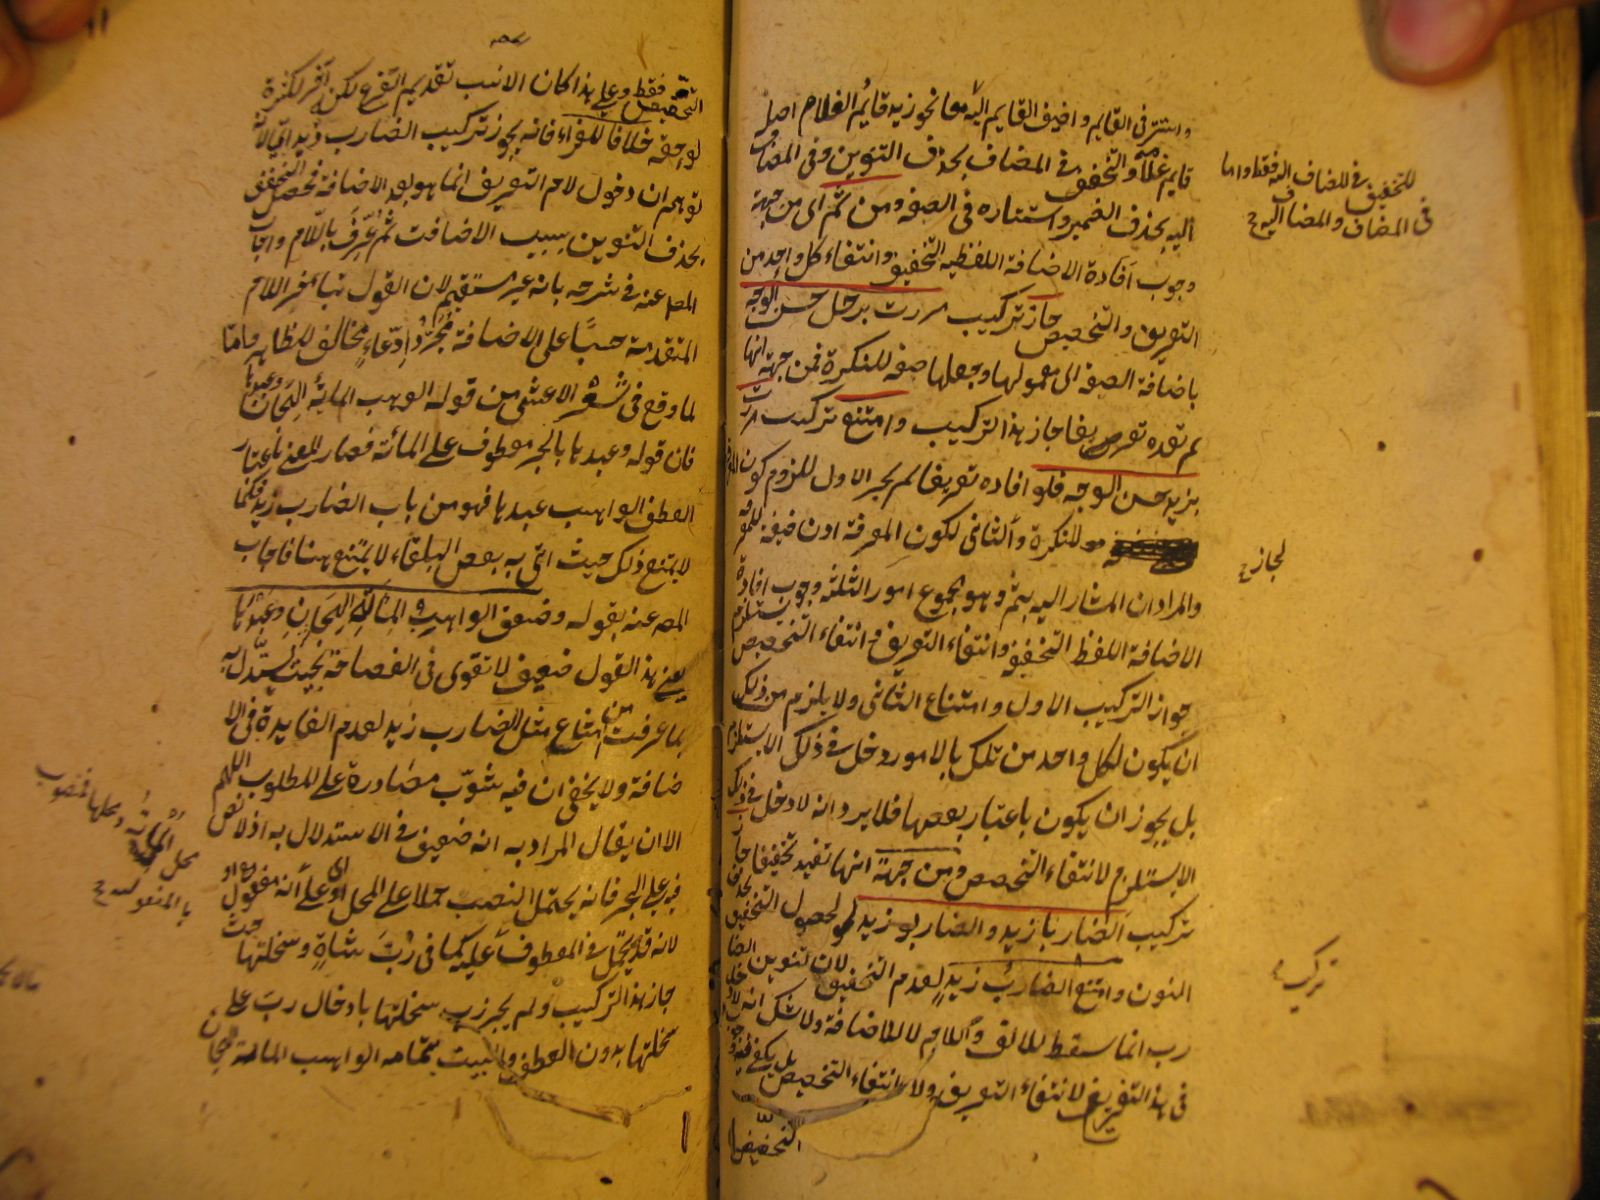 واستتر في القايم واضيف القايم اليه معا نحو زيد قايم الغلام اصله
قايم غلامه والتخفيف في المضاف بحذف التنوين وفي المضاف
اليه بحذف الضمير واستتاره في الصفه ومن ثم اي من جهة
وجوب افادة الاضافة اللفظيه التخفيف وانتفاء كل واحد من
التعريف والتخصيص جاز تركيب مررت برجل حسن الوجه
باضافة الصفه الى معمولها وجعلها صفه للنكرة فمن جهة انها
لم تفده تعريفا جاز هذا التركيب وامتنع تركيب مررت
بزيد حسن الوجه فلو افاده تعريفا لم يجز الاول للزوم كون المعرفة
للنكرة والثاني لكون المعرفة اذن صفه للمعرفة
والمراد ان المشار اليه بثم وهو مجموع امور الثلثه وجوب افادة
الاضافة اللفظ التخفيف وانتفاء التعريف وانتفاء التخصيص يستلزم
جواز التركيب الاول وامتناع الثاني ولا يلزم من ذلك
ان يكون لكل واحد من تلك بالامور دخل في ذلك الاستلزام
بل يجوز ان يكون باعتبار بعضها فلا يرد انه لا دخل في ذلك
الاستلزام لانتفاء التخصيص ومن جهة انها تفيد تخفيفا جاز
تركيب الضاربا زيد والضاربو زيد لحصول التخفيف بحذف
النون وامتنع الضارب زيد لعدم التخفيف لان تنوين الضا
رب انما سقط للالف واللام لا للاضافة ولا شك انه لا دخل
في هذا التفريع لانتفاء التعريف ولا انتفاء التخصيص بل يكفي فيه وجوب
التخفيف
للتخفيف في المضاف اليه فقط واما
في المضاف والمضاف اليه ح
لجاز ح
تركيب
التخفيف فقط وعلى هذا كان الانسب تقديم التفرع لكن آخر لكثرة
لواحقه خلافا للفراء فانه يجوز تركيب الضارب زيد اما لانه
توهم ان دخول لام التعريف انما هو بعد الاضافة فحصل التخفيف
بحذف التنوين بسبب الاضافت ثم عرف باللام واجاب
المص عنه في شرحه بانه غير مستقيم لان القول بتاخر اللام
المتقدمة حسا على الاضافة مجرد ادعاء مخالف للظاهر واما
لما وقع في شعر الاعشى من قوله الوهب المائة الهجان وعبدها
فان قوله وعبدها بالجر معطوف على المائة فصار المعنى باعتبار
العطف الواهب عبدها فهو من باب الضارب زيد فكما
لا يمتنع ذلك حيث اتى به بعض البلغاء لا يمتنع هنا فاجاب
المص عنه بقوله وضعف الواهب المائة الهجان وعبدها
يعني هذا القول ضعيف لا تقوى في الفصاحة بحيث يستدل به
لما عرفت من امتناع مثل الضارب زيد لعدم الفايدة في الا
ضافة ولا يخفى ان فيه شوب مصادرة على المطلوب اللهم
الا ان يقال المراد به انه ضعيف في الاستدلال به اذ لا نص
فيه على الجر فانه يحتمل النصب حملا على المحل او على انه مفعول معه او
لانه قد يتحمل في المعطوف عليه كما في رب شاة وسخلتها حيث
جاز هذا التركيب ولم يجز رب سخلتها بادخال رب على
سخلتها بدون العطف والبيت بتمامه الواهب المائة الهجان
محل المائة ومحلها منصوب
بالمفعولية ح